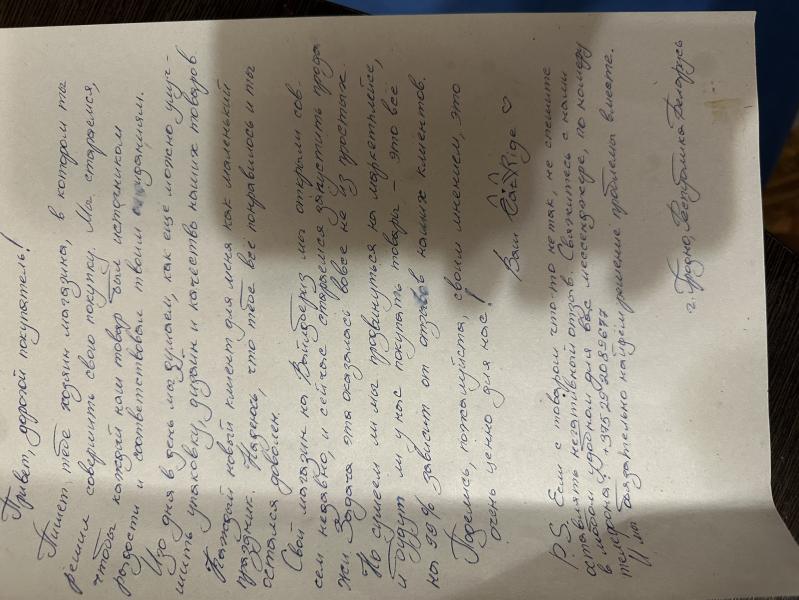 Привет, дорогой покупатель!
Пишет тебе хозяин магазина, в котором ты
решил совершить свою покупку. Мы стараемся,
чтобы каждый наш товар был источником
радости и соответствовал твоим ожиданиям.
Изо дня в день мы думаем, как ещё можно улуч-
шить упаковку, дизайн и качество наших товаров
Каждый новый клиент для меня как маленький
праздник. Надеюсь, что тебе всё понравилось и ты
остался доволен.
Свой магазин на Вайлдбериз мы открыли сов-
сем недавно, и сейчас стараемся запустить прода
жи. Задача эта оказалась вовсе не из простых.
Но сумеем ли мы продвинуться на маркетплейсе,
и будут ли у нас покупать товары – это всё
на 99% зависит от отзывов наших клиентов.
Поделись, пожалуйста, своим мнением, это
очень ценно для нас!
Ваш ♡
P.S. Если с товаром что-то не так, не спешите
оставлять негативный отзыв. Свяжитесь с нами
в любом удобном для вас мессенджере, по номеру
телефона: +375292089677
И мы обязательно найдём решение проблемы вместе.
г. Гродно, Республика Беларусь